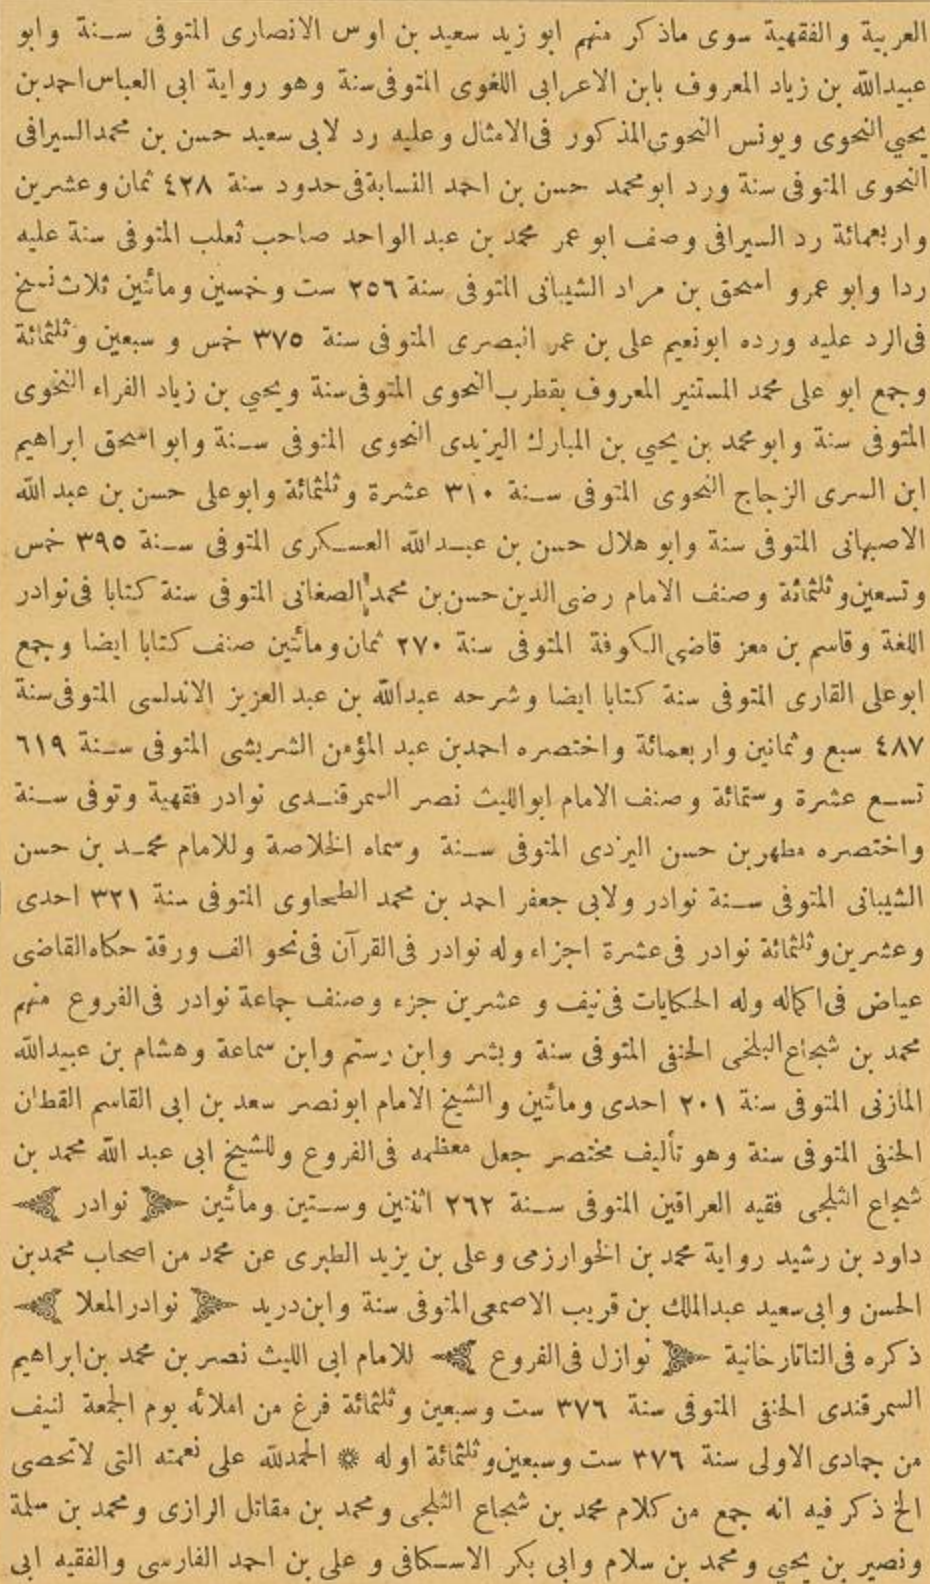 العربية والفقهية سوى ماذكر منهم ابو زيد سعيد بن اوس الانصارى المتوفى سنة وابو
عبيدالله بن زياد المعروف بابن الاعرابى اللغوى المتوفى سنة وهو رواية ابى العباس احمدبن
يحيي النحوى ويونس النحوى المذكور فى الامثال وعليه رد لابى سعيد حسن بن محمدالسيرافى
النحوى المتوفى سنة ورد ابومحمد حسن بن احمد النسابة فى حدود سنة ٤٢٨ ثمان وعشرين
واربعمائة رد السيرافى وصف ابو عمر محمد بن عبد الواحد صاحب ثعلب المتوفى سنة عليه
ردا وابو عمرو اسحق بن مراد الشيبانى المتوفى سنة ٢٥٦ ست وخمسين ومائتين ثلاث نسخ
فى الرد عليه ورده ابونعيم على بن عمر البصرى المتوفى سنة ٣٧٥ خمس و سبعين وثلثمائة
وجمع ابو على محمد المستنير المعروف بقطرب النحوى المتوفى سنة ويحيي بن زياد الفراء النخوى
المتوفى سنة وابومحمد بن يحيي بن المبارك اليزيدى النحوى المتوفى سنة وابو اسحق ابراهيم
ابن السرى الزجاج النحوى المتوفى سنة ٣١٠ عشرة وثلثمائة وابوعلى حسن بن عبد الله
الاصبهانى المتوفى سنة وابو هلال حسن بن عبد الله العسكرى المتوفى سنة ٣٩٥ خمس
وتسعين وثلثمائة وصنف الامام رضى الدين حسن بن محمد الصغانى المتوفى سنة كتابا فى نوادر
اللغة وقاسم بن معز قاضى الكوفة المتوفى سنة ٢٧٠ ثمان ومائتين صنف كتابا ايضا وجمع
ابوعلى القارى المتوفى سنة كتابا ايضا وشرحه عبدالله بن عبد العزيز الاندلسى المتوفى سنة
٤٨٧ سبع وثمانين واربعمائة واختصره احمدبن عبد المؤمن الشريشى المتوفى سنة ٦١٩
تسع عشرة وستمائة وصنف الامام ابوالليث نصر السمرقندى نوادر فقهية وتوفى سنة
واختصره مطهربن حسن اليزدى المتوفى سنة وسماه الخلاصة وللامام محمد بن حسن
الشيبانى المتوفى سنة نوادر ولابى جعفر احمد بن محمد الطحاوى المتوفى سنة ٣٢١ احدى
وعشرين وثلثمائة نوادر فى عشرة اجزاء وله نوادر فى القرآن فى نحو الف ورقة حكاه القاضى
عياض فى اكماله وله الحكايات فى نيف و عشرين جزء وصنف جماعة نوادر فى الفروع منهم
محمد بن شجاع البلخى الحنفى المتوفى سنة وبشر وابن رستم وابن سماعة وهشام بن عبيدالله
المازنى المتوفى سنة ٢٠١ احدى ومائتين والشيخ الامام ابونصر سعد بن ابى القاسم القطان
الحنفى المتوفى سنة وهو تأليف مختصر جعل معظمه فى الفروع وللشيخ ابى عبد الله محمد بن
شجاع الثلجى فقيه العراقين المتوفى سنة ٢٦٢ اثنتين وستين ومائتين نوادر
داود بن رشيد رواية محمد بن الخوارزمى وعلى بن يزيد الطبرى عن محمد من اصحاب محمدبن
الحسن وابى سعيد عبدالملك بن قريب الاصمعى المتوفى سنة وابن دريد نوادر المعلا
ذكره فى التاتارخانية نوازل فى الفروع للامام ابى الليث نصر بن محمد بن ابراهيم
السمرقندى الحنفى المتوفى سنة ٣٧٦ ست وسبعين وثلثمائة فرغ من املائه يوم الجمعة لنيف
من جمادى الاولى سنة ٣٧٦ ست وسبعين وثلثمائة اوله ۞ الحمدلله على نعمته التى لاتحصى
الخ ذكر فيه انه جمع من كلام محمد بن شجاع الثلجى ومحمد بن مقاتل الرازى ومحمد بن سلمة
ونصير بن يحيي ومحمد بن سلام وابى بكر الاسكافى و على بن احمد الفارسى والفقيه ابى